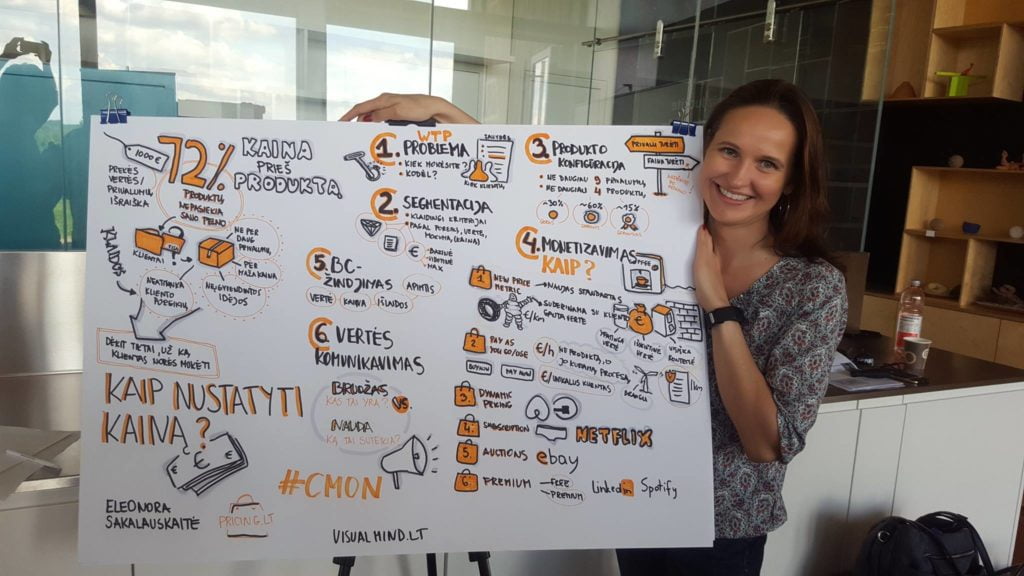 1000€
72%
KAINA
PRIEŠ
PRODUKTĄ
PREKĖS
VERTĖS/
PRIVALUMŲ
IŠRAIŠKA
PRODUKTŲ
NEPASIEKIA
SAVO TIKSLO
KLAIDOS
KLIENTAI
NE PER
DAUG
PRIVALUMŲ
PER
MAŽA KAINA
NEATITINKA
KLIENTO
POREIKIŲ
NEĮGYVENDINTOS
IDĖJOS
DĖKIT TIKTAI, UŽ KĄ
KLIENTAS NORĖS MOKĖTI
KAIP NUSTATYTI
KAINĄ?
€
ELEONORA
SAKALAUSKAITĖ
PRICING.LT
1. WTP
PROBLEMA
• KIEK MOKĖSITE?
• KODĖL?
2. SEGMENTACIJA
• KLAIDINGI KRITERIJAI
• PAGAL POREIKĮ, VERTĘ,
€
- MAX
5. BC-
ŽINDJIMAS
VERTĖ
KAINA
IŠLAIDOS
APIMTIS
6. VERTĖS
KOMUNIKAVIMAS
BRUOŽAS
KAS TAI YRA?
VS.
NAUDA
KĄ TAI SUTEIKIA?
#CMON
VISUALMIND.LT
3. PRODUKTO
KONFIGŪRACIJA
• NE DAUGIAU 9 PRIVALUMŲ,
• NE DAUGIAU 4 PRODUKTŲ,
PRIVALU TURĖTI
FAINA TURĖTI
~30%
~60%
~15%
4. MONETIZAVIMAS
KAIP?
1. NEW PRICE
METRIC
NAUJAS STANDARTAS
€/km
SUDERINAMA SU KLIENTO
GAUTA VERTE
€
2. PAY AS
YOU GO/USE
€/h
NE PRODUKTĄ, O
JO KURIAMĄ PROCESĄ
BUY NOW
PAY NOW
3. DYNAMIC
PRICING
4. SUBSCRIPTION
NETFLIX
5. AUCTIONS
ebay
6. PREMIUM
FREE
PREMIUM
Linked in
Spotify